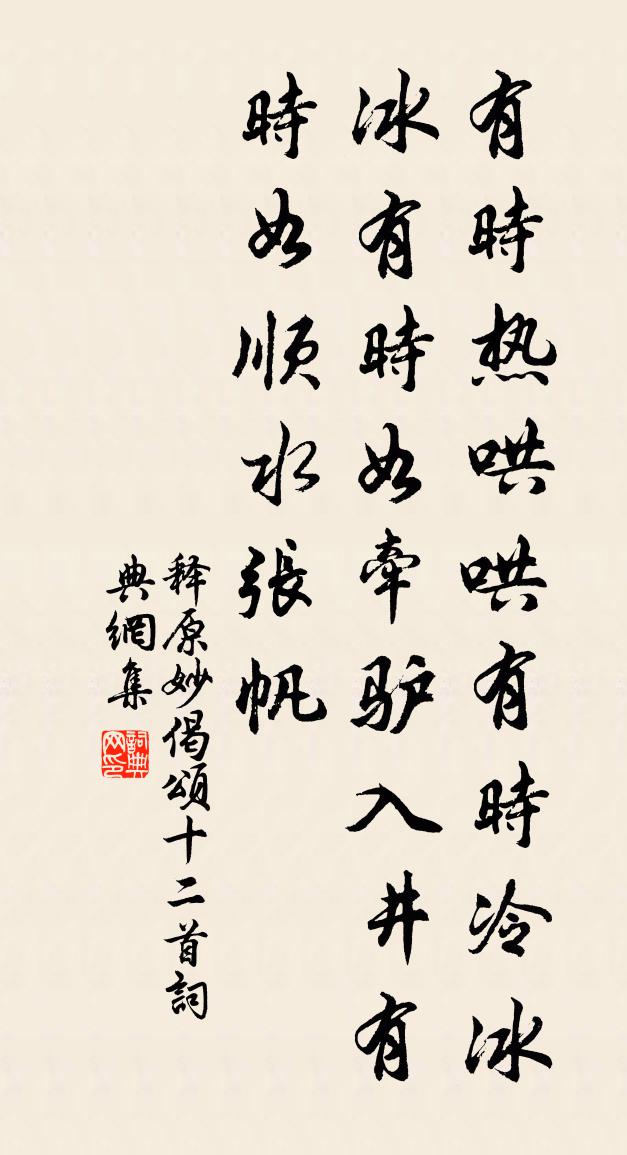 有時热哄哄有時冷冰
冰有時如牽驴入井有
時如順水張帆
释原妙偈頌十二首詞
典網集
詞典
网印